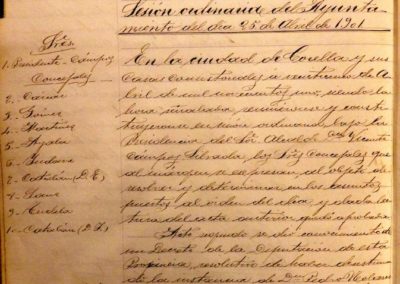 Sesión ordinaria del Ayunta-
miento del día 25 de Abril de 1901
Sres
1. Presidente - Campos
Concejales
2 -
3 -
4 - Martínez
5 - Ayala
6 -
7 - Catalán (D. E)
8 -
9 -
10 - Catalán (D. F)
En la ciudad de Corella y sus
Casas Consistoriales a veinticinco de A-
bril de mil novecientos uno, siendo la
hora señalada reuniéronse y consti-
tuyéronse en sesión ordinaria, bajo la
Presidencia del Sr. Alcalde Dn Vicente
Campos Salvador, los Sres Concejales que
al margen se expresan, al objeto de
resolver y determinar en los asuntos
puestos al orden del día, y dada lec-
tura del acta anterior quedó aprobada
Acto seguido se dió conocimiento de
un Decreto de la Diputación de esta
Provincia, resolutivo de
de la instancia de Dn Pedro